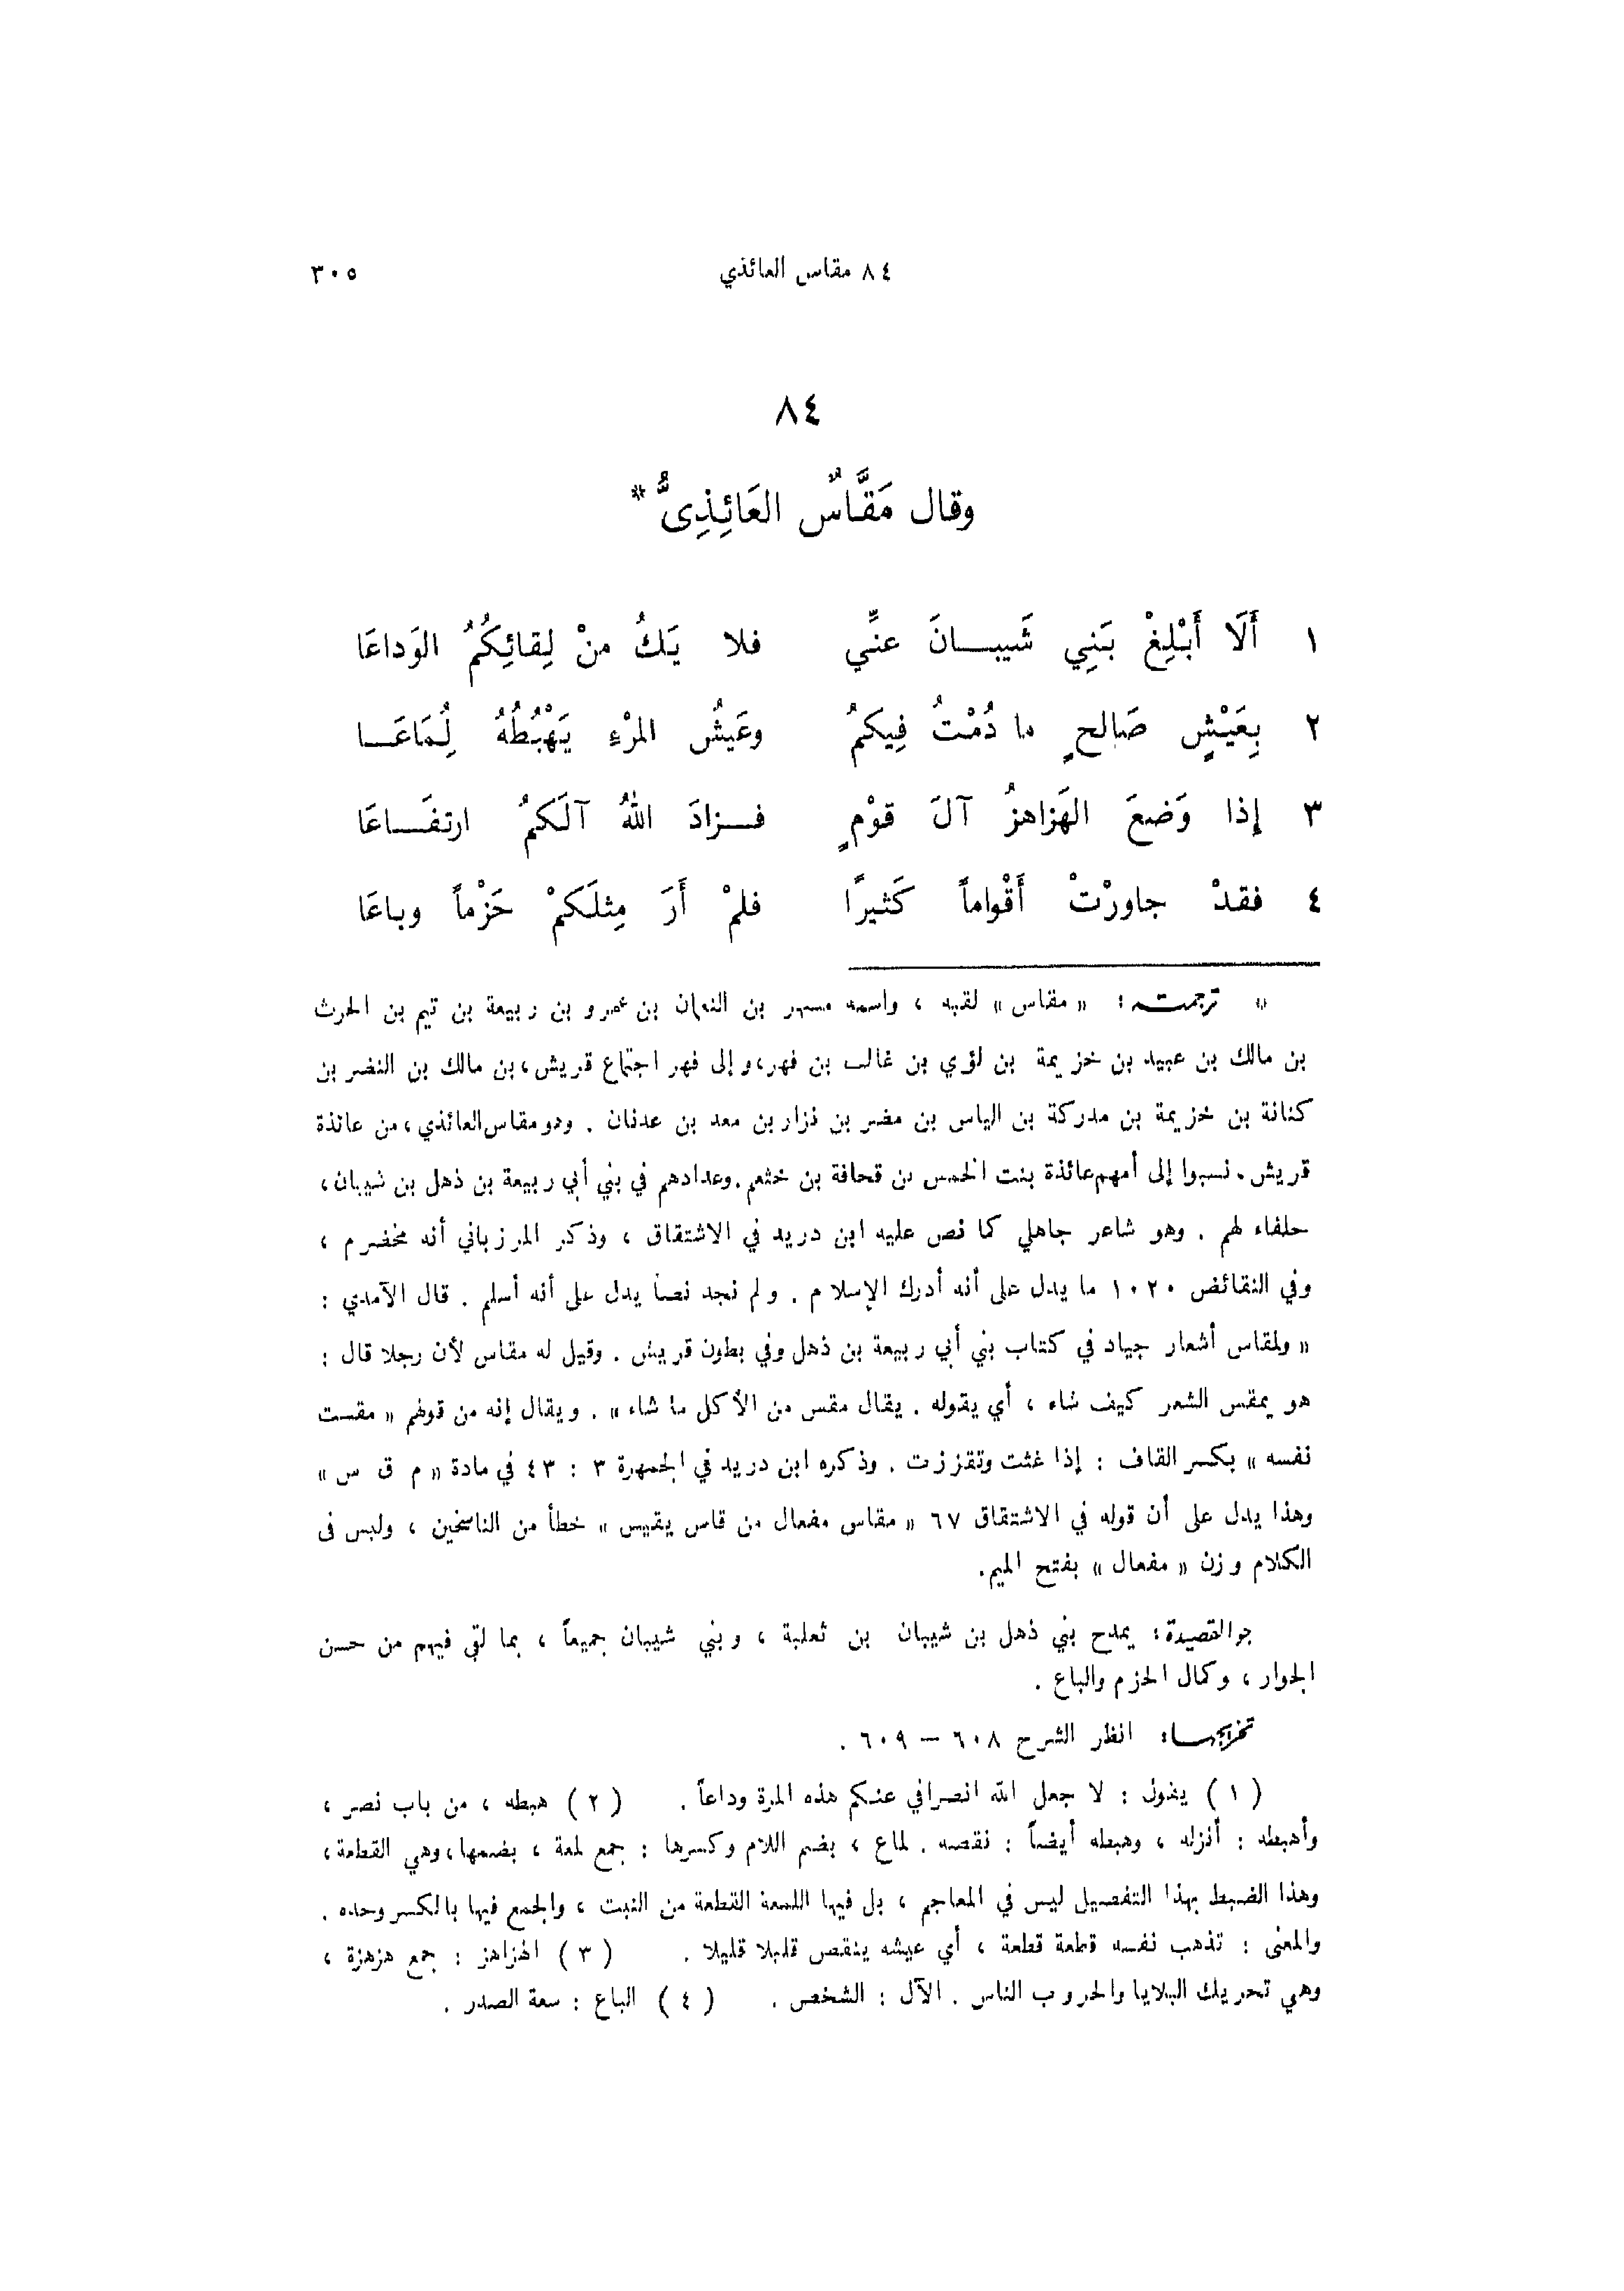 ٨٤ مقاس العائذي ٣٠٥
٨٤
وقال مَقَّاسٌ العَائِذِىُّ *
١ أَلَا أَبْلِغْ بَنِي شَيبانَ عنِّي فلا يَكُ منْ لِقائِكُمُ الوَداعَا
٢ بِعَيْشٍ صَالحٍ ما دُمْتُ فِيكمُ وعَيشُ المرْءِ يَهْبُطُهُ لُمَاعَا
٣ إِذا وَضعَ الهَزاهزُ آلَ قوْمٍ فزادَ اللهُ آلَكمُ ارتفَاعَا
٤ فقدْ جاورْتْ أَقْواماً كَثيرًا فلمْ أَرَ مِثلَكمْ حَزْماً وباعَا
* ترجمته: « مقاس » لقبه ، واسمه مسهر بن النعمان بن عمرو بن ربيعة بن تيم بن الحرث
بن مالك بن عبيد بن خزيمة بن لؤي بن غالب بن فهر، وإلى فهر اجتماع قريش، بن مالك بن النضر بن
كنانة بن خزيمة بن مدركة بن الياس بن مضر بن نزار بن معد بن عدنان . وهو مقاس العائذي، من عائذة
قريش. نسبوا إلى أمهم عائذة بنت الخمس بن قحافة بن خثعم. وعدادهم في بني أبي ربيعة بن ذهل بن شيبان،
حلفاء لهم . وهو شاعر جاهلي كما نص عليه ابن دريد في الاشتقاق ، وذكر المرزباني أنه مخضرم ،
وفي النقائض ١٠٢٠ ما يدل على أنه أدرك الإسلام . ولم نجد نصا يدل على أنه أسلم . قال الآمدي :
« ولمقاس أشعار جياد في كتاب بني أبي ربيعة بن ذهل وفي بطون قريش . وقيل له مقاس لأن رجلا قال :
هو يمقس الشعر كيف شاء ، أي يقوله . يقال مقس من الأكل ما شاء » . ويقال إنه من قولهم « مقست
نفسه » بكسر القاف : إذا غثت وتقززت . وذكره ابن دريد في الجمهرة ٣ : ٤٣ في مادة « م ق س »
وهذا يدل على أن قوله في الاشتقاق ٦٧ « مقاس مفعال من قاس يقيس » خطأ من الناسخين ، وليس فى
الكلام وزن « مفعال » بفتح الميم.
جو القصيدة: يمدح بني ذهل بن شيبان بن ثعلبة ، وبني شيبان جميعاً ، بما لقي فيهم من حسن
الجوار ، وكمال الحزم والباع .
تخريجها: انظر الشرح ٦٠٨ – ٦٠٩ .
( ١ ) يقول : لا جعل الله انصرافي عنكم هذه المرة وداعاً . ( ٢ ) هبطه ، من باب نصر ،
وأهبطه : أنزله ، وهبطه أيضاً : نقصه . لماع ، بضم اللام وكسرها : جمع لمعة ، بضمها، وهي القطعة،
وهذا الضبط بهذا التفصيل ليس في المعاجم ، بل فيها اللمعة القطعة من النبت ، والجمع فيها بالكسر وحده .
والمعنى : تذهب نفسه قطعة قطعة ، أي عيشه ينقص قليلا قليلا . ( ٣ ) الهزاهز : جمع هزهزة ،
وهي تحريك البلايا والحروب الناس . الآل : الشخص . ( ٤ ) الباع : سعة الصدر .